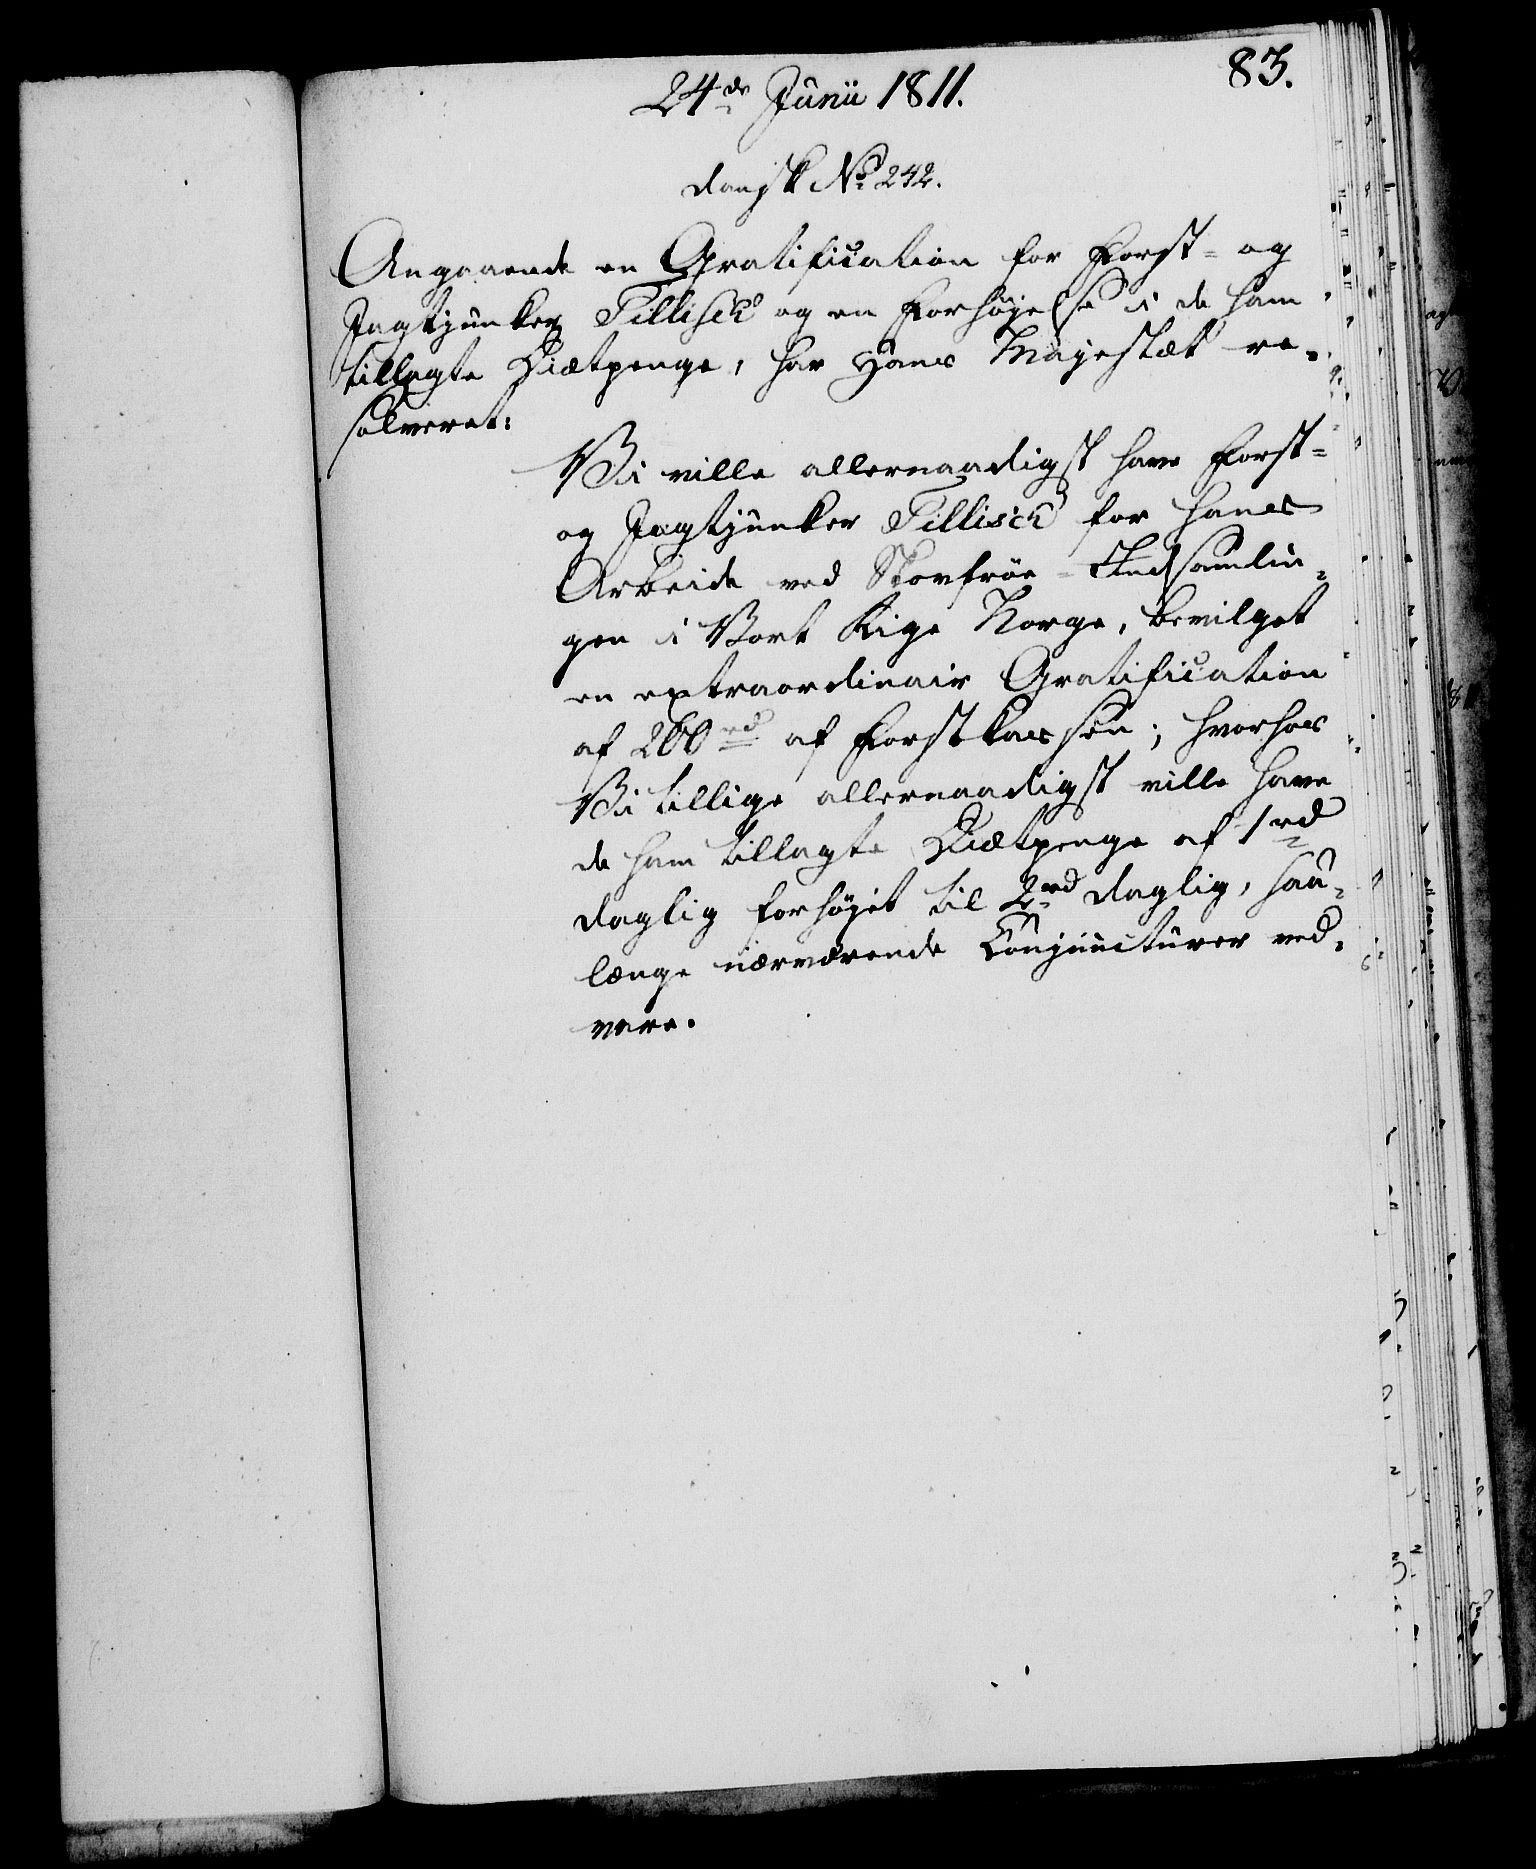 83.
24de Junii 1811.
dansk No 242.
Angaaende en Gratification for Forst= og
Jagtjunker Tillisch og en Forhøjelse i de ham
tillagte Diætpenge, har Hans Majestæt re-
solveret:
Vi ville allernaadigst have Forst=
og Jagtjunker Tillisch for hans
Arbeide ved Skovfrøe-Indsamlin-
gen i Vort Rige Norge, bevilget
en extraordinair Gratification
af 200 rd af Forstkassen; hvorhos
Vi tillige allernaadigst ville have
de ham tillagte Diætpenge af 1 rd
daglig forhøjet til 2 rd daglig, saa-
længe nærværende Conjuncturer ved-
vare.